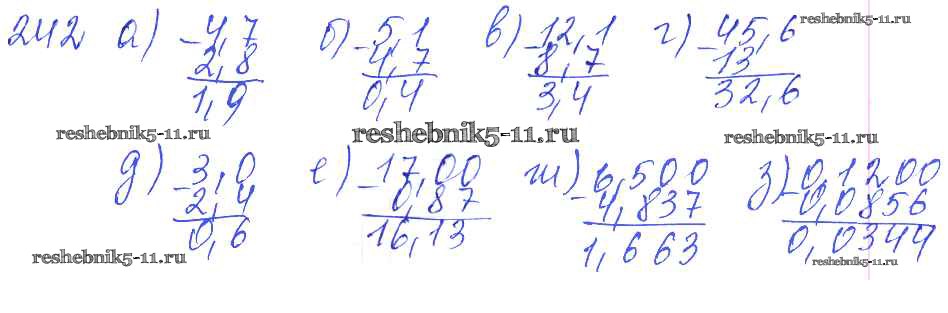 reshebnik5-11.ru
242 а) -4,7 б) -5,1 в) -12,1 г) -45,6
2,8 4,7 8,7 13
1,9 0,4 3,4 32,6
reshebnik5-11.ru reshebnik5-11.ru reshebnik5-11.ru
д) -3,0 е) -17,00 ж) -6,500 з) -0,1200
2,4 0,87 4,837 0,0856
0,6 16,13 1,663 0,0344
reshebnik5-11.ru reshebnik5-11.ru